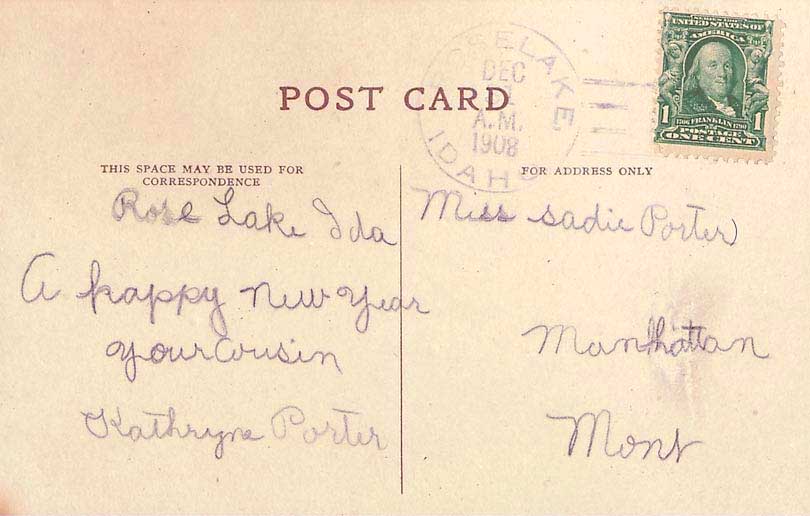 POST CARD
ROSELAKE
DEC
A.M.
1908
IDAHO
SERIES 1902
UNITED STATES OF
AMERICA
1706 FRANKLIN 1790
1 POSTAGE 1
ONE CENT
THIS SPACE MAY BE USED FOR
CORRESPONDENCE
Rose Lake Ida
A happy new Year
your cousin
Kathryne Porter
FOR ADDRESS ONLY
Miss Sadie Porter
Manhattan
Mont